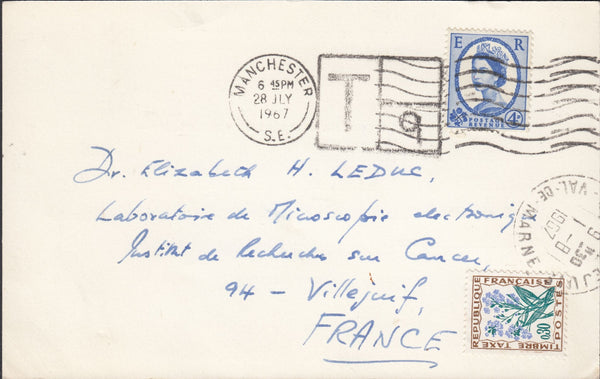 E R
POSTAGE
REVENUE
4D
MANCHESTER
6 45PM
28 JLY
1967
S.E.
T
9
Dr. Elizabeth H. LEDUC,
Laboratoire de Microscopie electroniq
Institut de Recherches sur Cancer,
94 - Villejuif,
FRANCE
VAL-DE-MARNE
1967
REPUBLIQUE FRANÇAISE
POSTES
0,30
TIMBRE TAXE